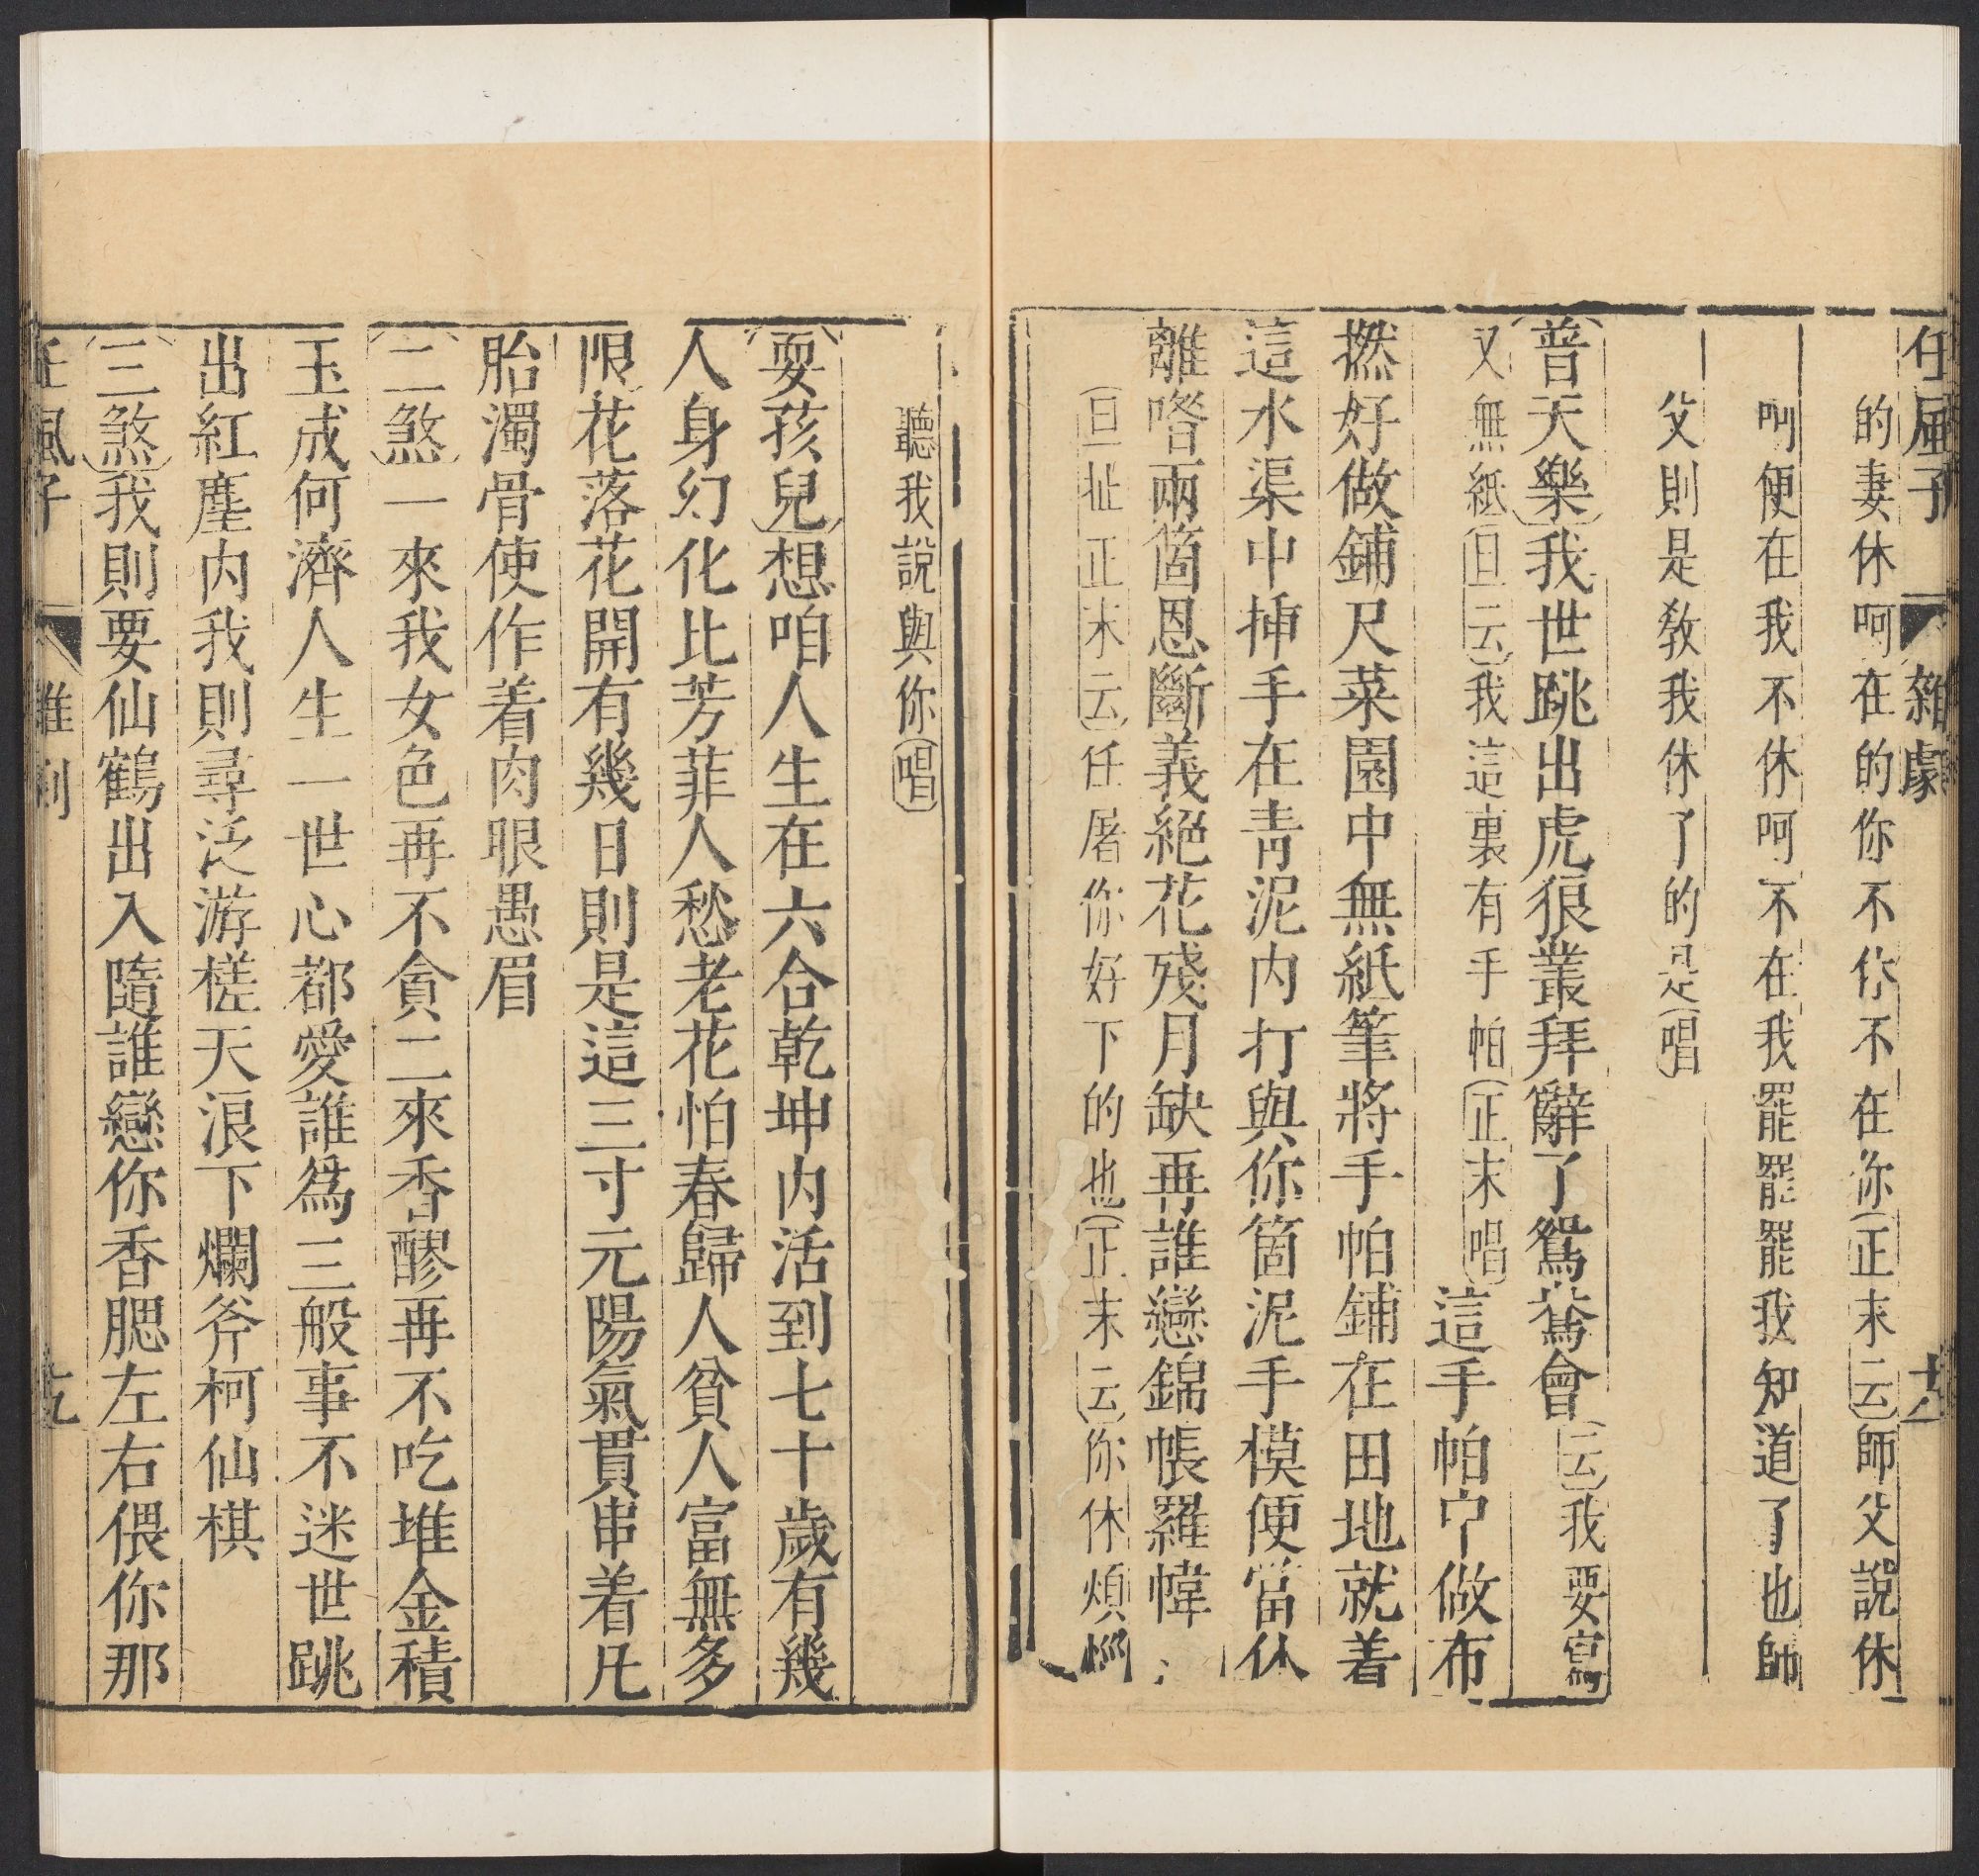 任風子 雜劇 十八
的妻休呵在的你不休不在你(正末云)師父說休
呵便在我不休呵不在我罷罷罷我知道了也師
父則是教我休了的是(唱)
(普天樂)我世跳出虎狼叢拜辭了鴛鴦會(云)我要寫
又無紙(旦云)我這裏有手帕(正末唱)這手帕中做布
撚好做鋪尺菜園中無紙筆將手帕鋪在田地就着
這水渠中揷手在青泥內打與你箇泥手模便當休
離喒兩箇恩斷義絕花殘月缺再誰戀錦帳羅幃
(旦扯正末云)任屠你好下的也(正末云)你休煩惱
聽我說與你(唱)
(耍孩兒)想咱人生在六合乾坤內活到七十歲有幾
人身幻化比芳菲人愁老花怕春歸人貧人富無多
限花落花開有幾日則是這三寸元陽氣貫串着凡
胎濁骨使作着肉眼愚眉
(二煞)一來我女色再不貪二來香醪再不吃堆金積
玉成何濟人生一世心都愛誰爲三般事不迷世跳
出紅塵內我則尋泛游槎天浪下爛斧柯仙棋
(三煞)我則要仙鶴出入隨誰戀你香腮左右偎你那
任風子 雜劇